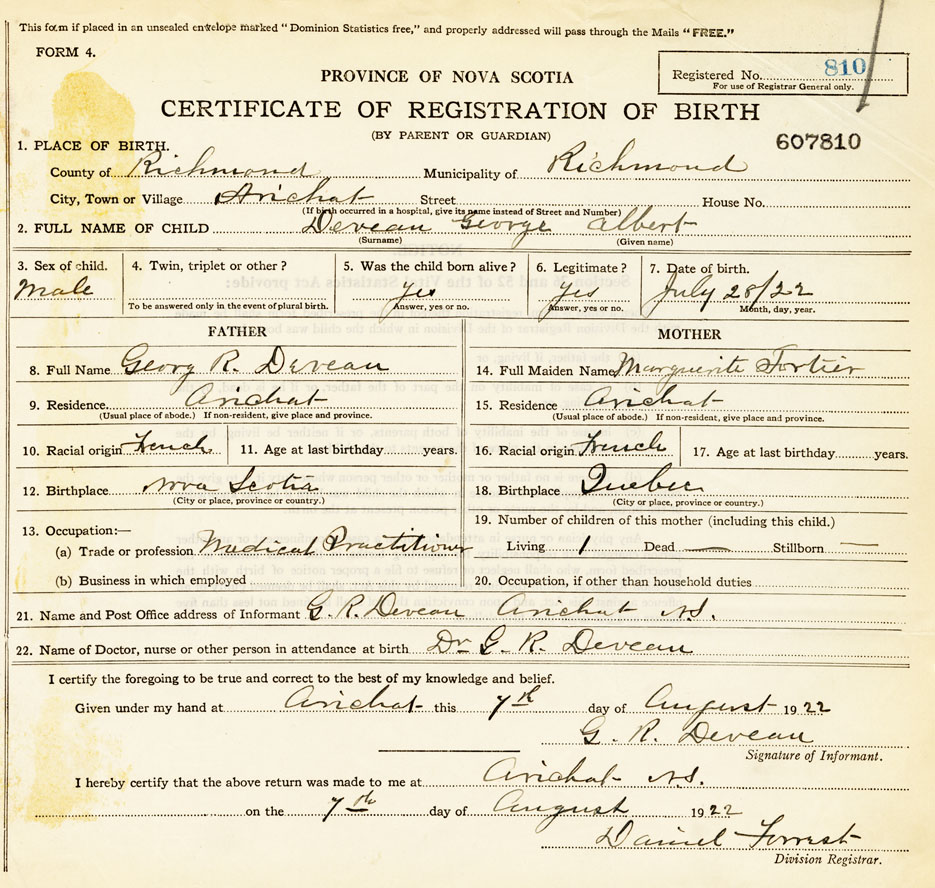 This form if placed in an unsealed envelope marked "Dominion Statistics free," and properly addressed will pass through the Mails "FREE."
FORM 4.
PROVINCE OF NOVA SCOTIA
Registered No. 810
For use of Registrar General only.
CERTIFICATE OF REGISTRATION OF BIRTH
(BY PARENT OR GUARDIAN)
607810
1. PLACE OF BIRTH.
County of Richmond Municipality of Richmond
City, Town or Village Arichat Street House No.
(If birth occurred in a hospital, give its name instead of Street and Number)
2. FULL NAME OF CHILD Deveau George Albert
(Surname) (Given name)
3. Sex of child. 4. Twin, triplet or other? 5. Was the child born alive? 6. Legitimate? 7. Date of birth.
Male yes yes July 28/22
To be answered only in the event of plural birth. Answer, yes or no. Answer, yes or no. Month, day, year.
FATHER MOTHER
8. Full Name Georg R. Deveau 14. Full Maiden Name Marguerite Fortier
9. Residence Arichat 15. Residence Arichat
(Usual place of abode.) If non-resident, give place and province. (Usual place of abode.) If non-resident, give place and province.
10. Racial origin French 11. Age at last birthday years. 16. Racial origin French 17. Age at last birthday years.
12. Birthplace Nova Scotia 18. Birthplace Quebec
(City or place, province or country.) (City or place, province or country.)
13. Occupation:— 19. Number of children of this mother (including this child.)
(a) Trade or profession Medical Practitioner Living 1 Dead — Stillborn —
(b) Business in which employed 20. Occupation, if other than household duties
21. Name and Post Office address of Informant G. R. Deveau Arichat N.S.
22. Name of Doctor, nurse or other person in attendance at birth Dr G. R. Deveau
I certify the foregoing to be true and correct to the best of my knowledge and belief.
Given under my hand at Arichat this 7th day of August 1922
G. R. Deveau
Signature of Informant.
I hereby certify that the above return was made to me at Arichat N.S.
on the 7th day of August 1922
Daniel Forrest
Division Registrar.